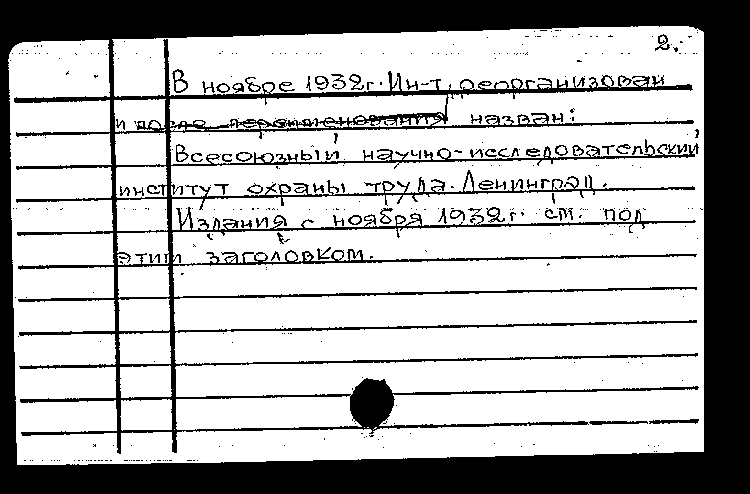 2.
В ноябре 1932г. Ин-т реорганизован
и после переименования назван:
Всесоюзный научно-исследовательский
институт охраны труда. Ленинград.
Издания с ноября 1932г. см. под
этим заголовком.